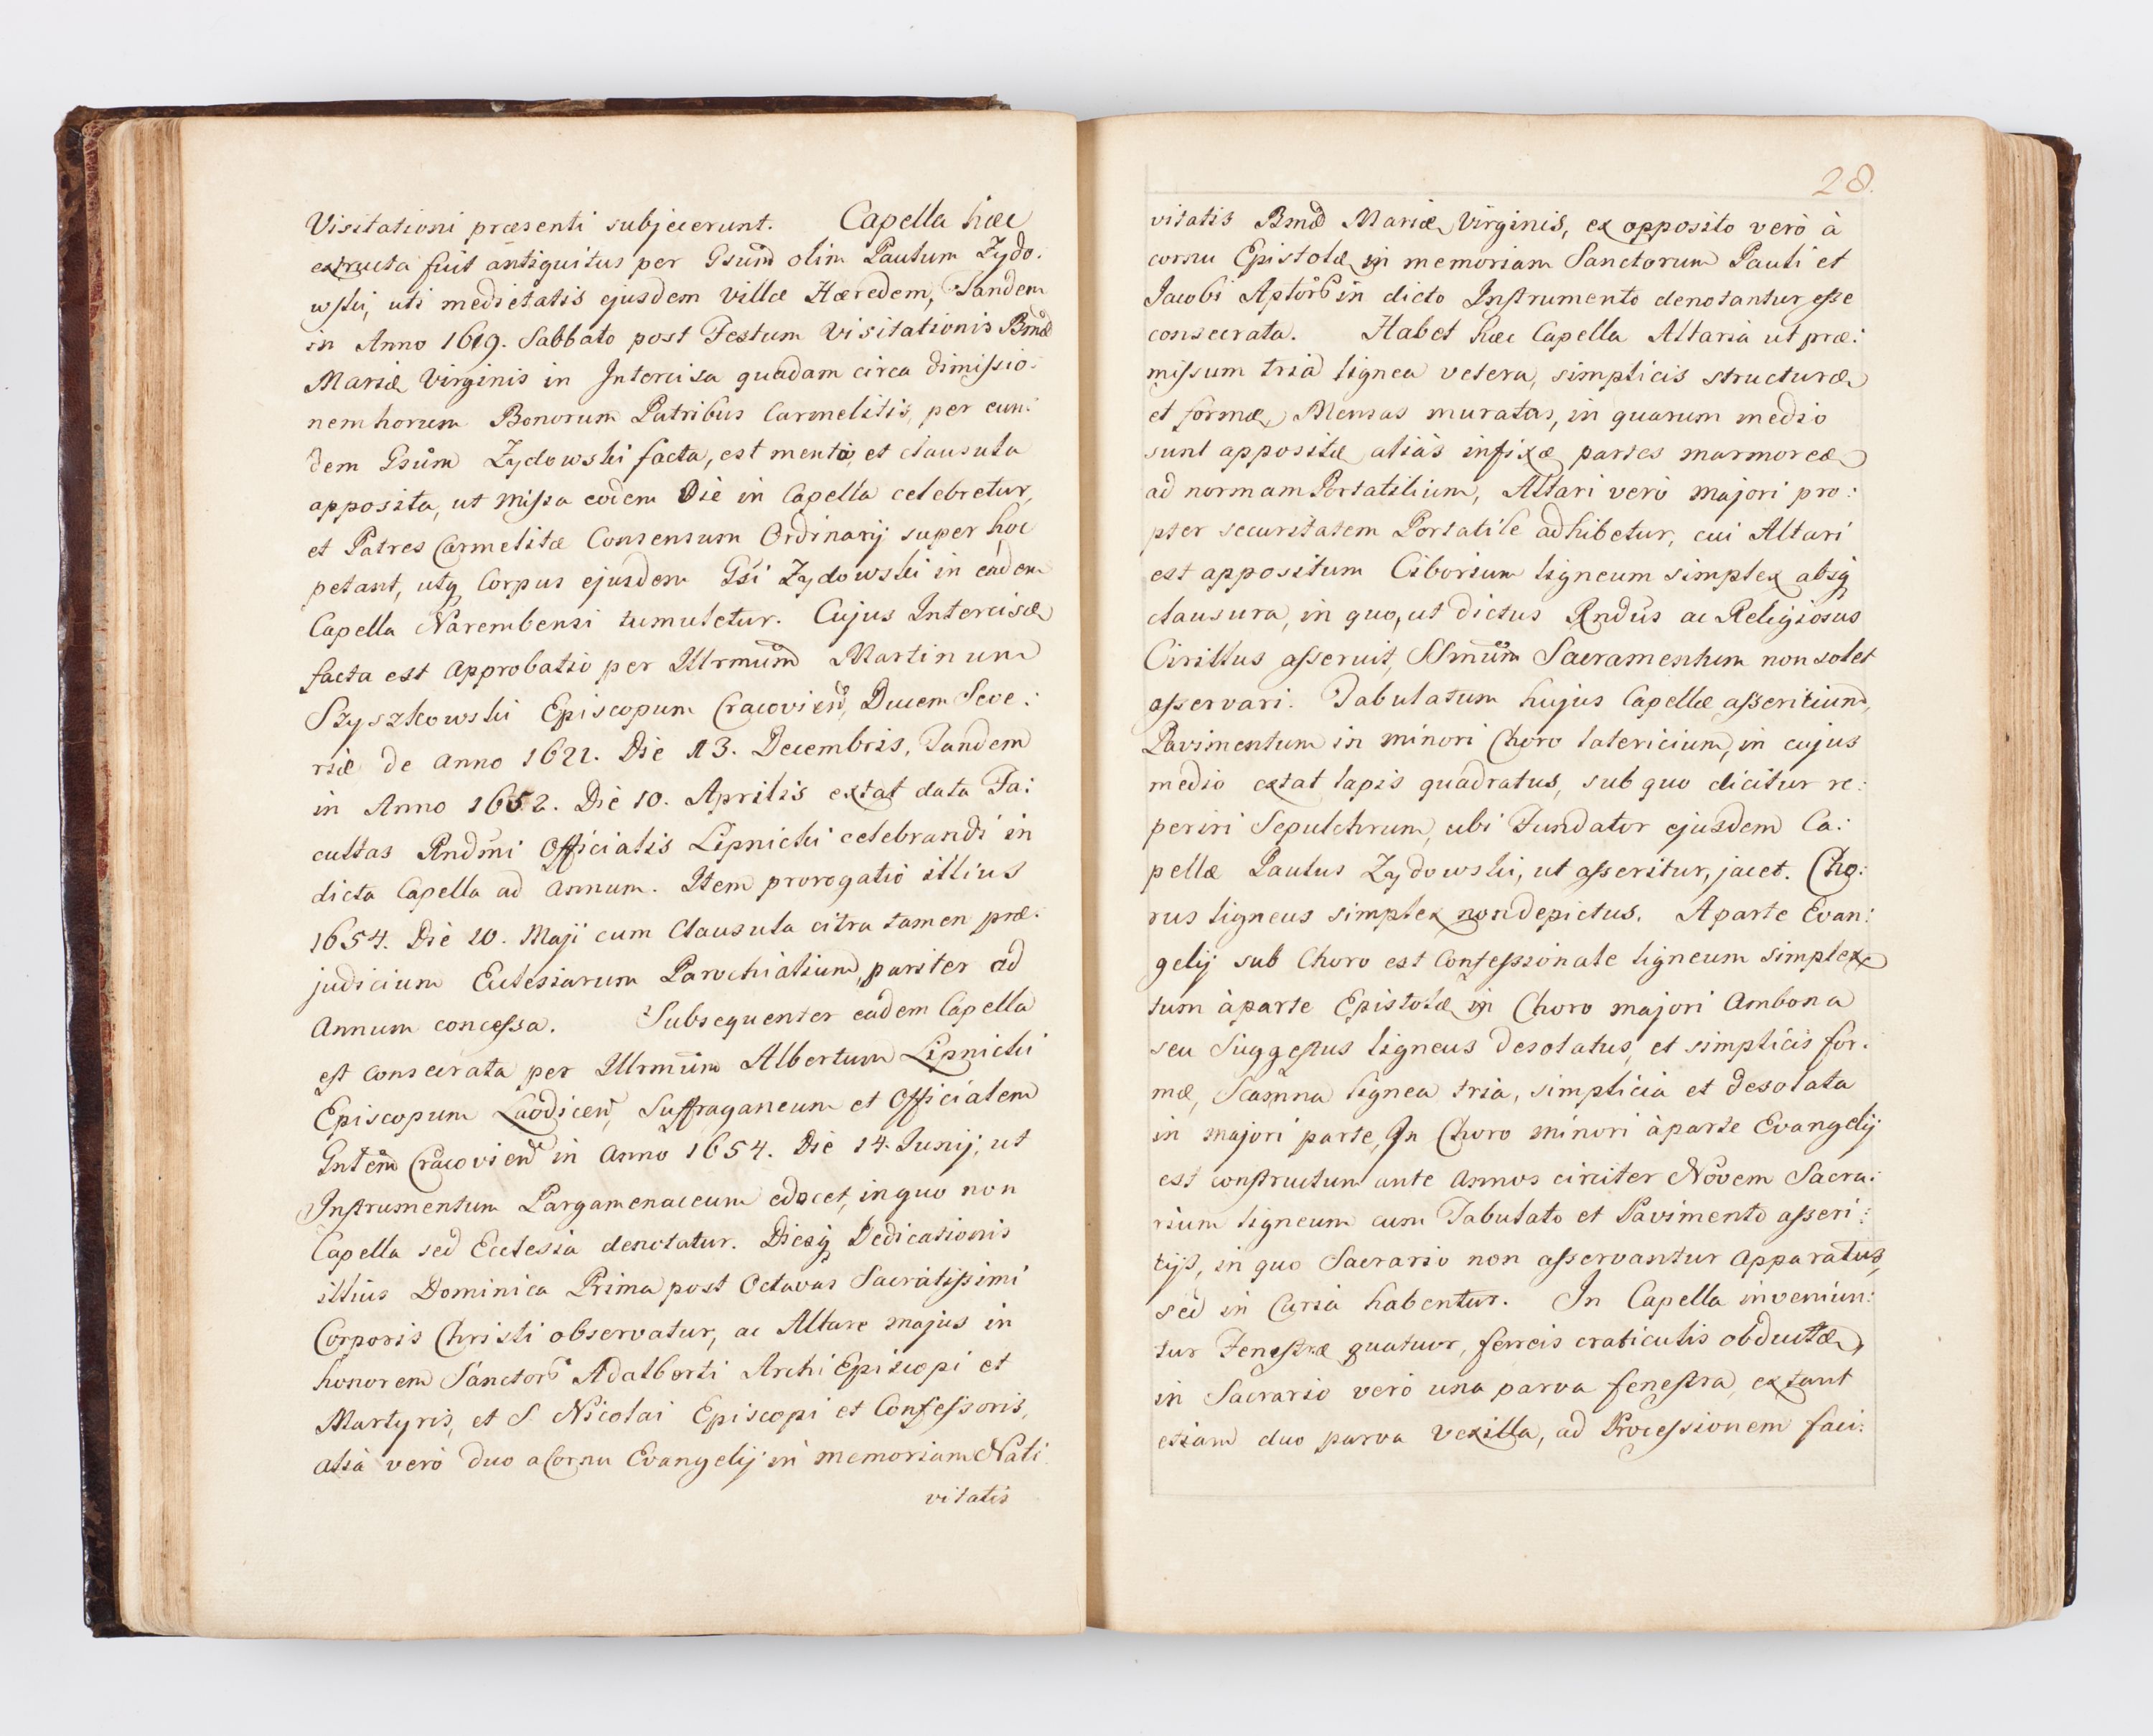 Visitationi præsenti subjecerunt. Capella hæc
extructa fuit antiquitus per Gsum̃ olim Paulum Zydo:
wski, uti medietatis ejusdem Villæ Hæredem, Tandem
in Anno 1619. Sabbato post Festum Visitationis Bmæ
Mariæ Virginis in Intercisa quadam circa dimissio:
nem horum Bonorum Patribus Carmelitis, per eun:
dem Gsum̃ Zydowski facta, est mentio, et clausula
apposita, ut Missa eodem Die in Capella celebretur,
et Patres Carmelitæ Consensum Ordinarij super hoc
petant, utq Corpus ejusdem Gsi Zydowski in eadem
Capella Narembensi tumuletur. Cujus Intercisæ
facta est Approbatio per Illrmum̃ Martinum
Szyszkowski Episcopum Cracovien̄, Ducem Seve:
riæ de Anno 1621. Die 13. Decembris, Tandem
in Anno 1652. Die 10. Aprilis extat data Fa:
cultas Rndm̃i Officialis Lipnicki celebrandi in
dicta Capella ad Annum. Item prorogatio illius
1654. Die 20. Maji cum Clausula citra tamen præ:
judicium Ecclesiarum Parochialium, pariter ad
Annum concessa. Subsequenter eadem Capella
est consecrata per Illrmum̃ Albertum Lipnicki
Episcopum Laodicen̄, Suffraganeum et Officialem
Gnlem̃ Cracovien̄ in Anno 1654. Die 14. Junij, ut
Instrumentum Pargamenaceum edocet, in quo non
Capella sed Ecclesia denotatur. Diesq Dedicationis
illius Dominica Prima post Octavas Sacratissimi
Corporis Christi observatur, ac Altare majus in
honorem Sanctor̃ Adalberti Archi Episcopi et
Martyris, et S. Nicolai Episcopi et Confessoris,
alia vero duo a Cornu Evangelij in memoriam Nati
vitatis
28.
vitatis Bmæ Mariæ Virginis, ex opposito verò à
cornu Epistolæ in memoriam Sanctorum Pauli et
Jacobi Aptor̃ in dicto Instrumento denotantur esse
consecrata. Habet hæc Capella Altaria ut præ:
missum tria lignea vetera, simplicis structuræ
et formæ, Mensas muratas, in quarum medio
sunt appositæ aliàs infixæ partes marmoreæ
ad normam Portatilium, Altari verò majori pro:
pter securitatem Portatile adhibetur, cui Altari
est appositum Ciborium ligneum simplex absq
clausura, in quo, ut dictus Rndus ac Religiosus
Cirillus asseruit, SSmum̃ Sacramentum non solet
asservari. Tabulatum hujus Capellæ asseritium,
Pavimentum in minori Choro latericium, in cujus
medio extat lapis quadratus, sub quo dicitur re:
periri Sepulchrum, ubi Fundator ejusdem Ca:
pellæ Paulus Zydowski, ut asseritur, jacet. Cho:
rus ligneus simplex non depictus. A parte Evan:
gelij sub Choro est Confessionale ligneum simplex
tum à parte Epistolæ in Choro majori Ambona
seu Suggestus ligneus desolatus, et simplicis for:
mæ, Scamna lignea tria, simplicia et desolata
in majori parte, In Choro minori à parte Evangelij
est constructum ante Annos circiter Novem Sacra:
rium ligneum cum Tabulato et Pavimento asseri:
tijs, in quo Sacrario non asservantur Apparatus,
sed in Curia habentur. In Capella inveniun:
tur Fenestræ quatuor, ferreis craticulis obductæ,
in Sacrario verò una parva fenestra, extant
etiam duo parva vexilla, ad Processionem faci: